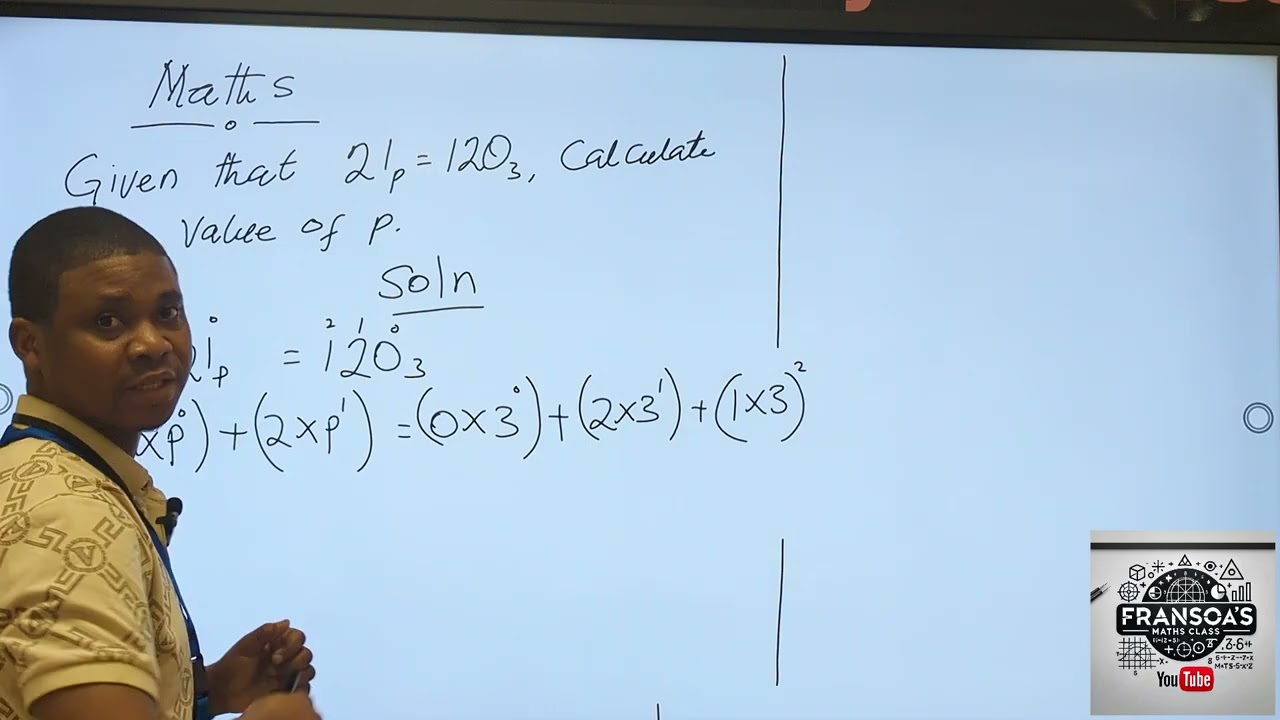 Maths
Given that 21ₚ = 120₃, Calculate
value of p.
Soln
1ₚ = 1²2¹0⁰₃
xp⁰) + (2xp¹) = (0x3⁰) + (2x3¹) + (1x3)²
FRANSOA'S
MATHS CLASS
YouTube